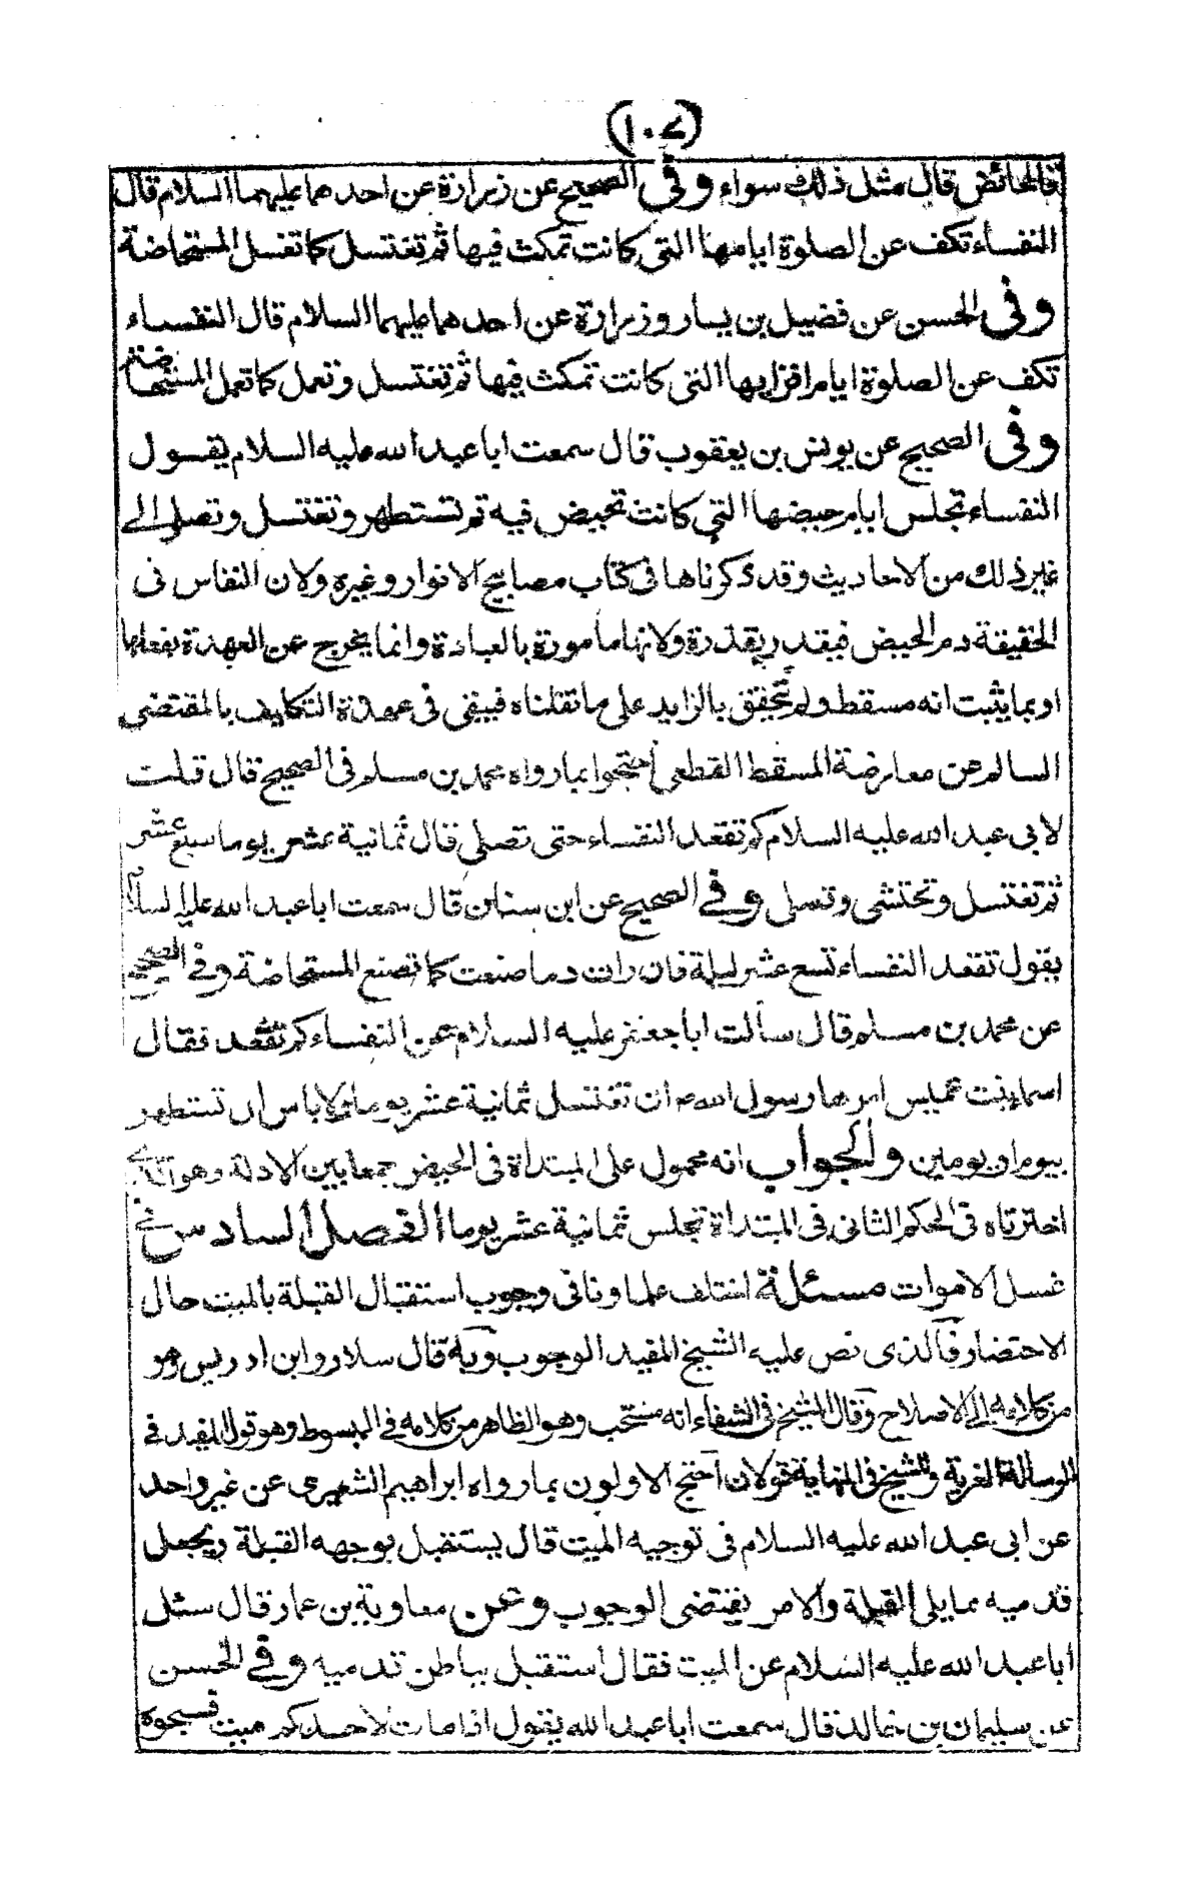 (١٠٧)
فالحائض قال مثل ذلك سواء وفى الصحيح عن زرارة عن احدهما عليهما السلام قال
النفساء تكف عن الصلوة ايامها التى كانت تمكث فيها ثم تغتسل كما تغسل المستحاضة
وفى الحسن عن فضيل بن يسار وزرارة عن احدهما عليهما السلام قال النفساء
تكف عن الصلوة ايام اقرايها التى كانت تمكث فيها ثم تغتسل وتعمل كما تعمل المستحاضة
وفى الصحيح عن يونس بن يعقوب قال سمعت ابا عبد الله عليه السلام يقول
النفساء تجلس ايام حيضها التى كانت تحيض فيه ثم تستطهر وتغتسل وتصلى الى
غير ذلك من الاحاديث وقد ذكرناها فى كتاب مصابيح الانوار وغيره ولان النفاس فى
الحقيقة دم الحيض فيقدر بقدره ولانها مامورة بالعبادة وانما يخرج عن العهدة بفعلها
او بما يثبت انه مسقط ولم يتحقق بالزايد على ما نقلناه فيبقى فى عهدة التكليف بالمقتضى
السالم عن معارضة المسقط القطعى احتجوا بما رواه محمد بن مسلم فى الصحيح قال قلت
لابى عبد الله عليه السلام كم تقعد النفساء حتى تصلى قال ثمانية عشر يوما سبع عشر
ثم تغتسل وتحتشى وتصلى وفى الصحيح عن ابن سنان قال سمعت ابا عبد الله عليه السلام
يقول تقعد النفساء تسع عشر ليلة فان رات دما صنعت كما تصنع المستحاضة وفى الصحيح
عن محمد بن مسلم قال سألت ابا جعفر عليه السلام عن النفساء كم تقعد فقال
اسماء بنت عميس امرها رسول الله ص ان تغتسل ثمانية عشر يوما ولا باس ان تستطهر
بيوم او يومين والجواب انه محمول على المبتداة فى الحيض جمعا بين الادلة وهو
اخترناه فى الحكم الثانى فى المبتداة تجلس ثمانية عشر يوما الفصل السادس فى
غسل الاموات مسئلة اختلف علماونا فى وجوب استقبال القبلة بالميت حال
الاحتضار فالذى نص عليه الشيخ المفيد الوجوب وبه قال سلار وابن ادريس وهو
من كلامه الى الاصلاح وقال الشيخ فى الشفاء انه مستحب وهو الظاهر من كلامه فى المبسوط وهو قول المفيد فى
الرسالة الغرية وللشيخ فى النهاية قولان احتج الاولون بما رواه ابراهيم الشعيرى عن غير واحد
عن ابى عبد الله عليه السلام فى توجيه الميت قال يستقبل بوجهه القبلة ويجعل
قدميه مما يلى القبلة والامر يقتضى الوجوب وعن معاوية بن عمار قال سئل
ابا عبد الله عليه السلام عن الميت فقال استقبل بباطن قدميه وفى الحسن
عن سليمان بن خالد قال سمعت ابا عبد الله يقول اذا مات لاحدكم ميت فسجوه